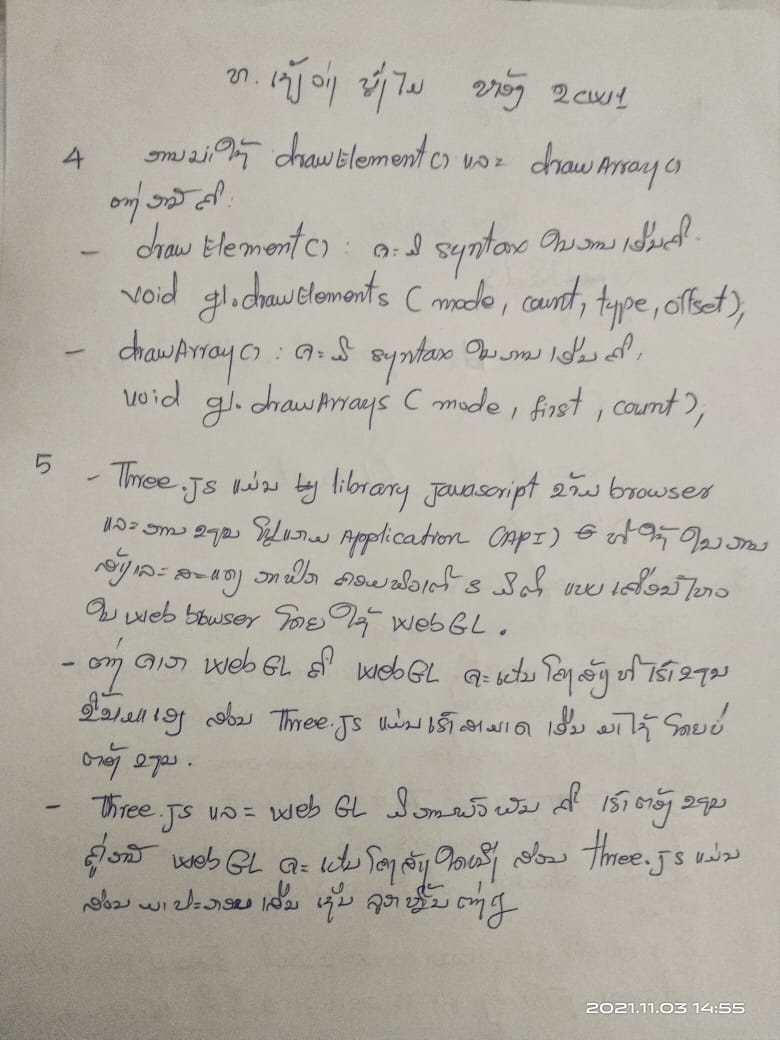 ທ. ເຊັ່ງ ວ່າງ ຢື່ໄມ ຫ້ອງ 2CW1
4 ການນຳໃຊ້ drawElement() ແລະ drawArray()
ຕ່າງກັນຄື:
- draw Element() : ຈະມີ syntax ໃນການເອີ້ນຄື.
void gl.drawElements (mode, count, type, offset);
- drawArray() : ຈະມີ syntax ໃນການເອີ້ນຄື.
void gl.drawArrays (mode, first, count);
5 - Three.JS ແມ່ນ library Javascript ຂ້າມ browser
ແລະ ການຂຽນ ໂປຼແກມ Application (API) ທີ່ໃຊ້ ໃນການ
ສ້າງແລະ ສະແດງ ກາຟິກ ຄອມພິວເຕີ 3 ມິຕິ ແບບເຄື່ອນໄຫວ
ໃນ web browser ໂດຍໃຊ້ WebGL.
- ຕ່າງຈາກ WebGL ຄື WebGL ຈະແມ່ນໂຄງສ້າງທີ່ເຮົາຂຽນ
ຂຶ້ນມາເອງ ສ່ວນ Three.JS ແມ່ນເຮົາສາມາດ ເອີ້ນ ມາໃຊ້ ໂດຍບໍ່
ຕ້ອງ ຂຽນ.
- Three.JS ແລະ web GL ມີການພົວພັນ ຄື ເຮົາຕ້ອງຂຽນ
ຄູ່ກັນ web GL ຈະເປັນໂຄງສ້າງໃດໜຶ່ງ ສ່ວນ three.JS ແມ່ນ
ສ່ວນ ມາປະກອບ ເຊັ່ນ ຮູບຊົງຕ່າງໆ
2021.11.03 14:55